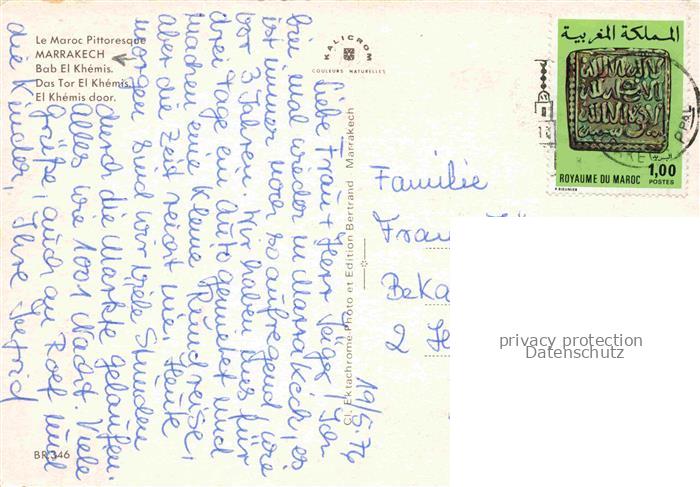 Le Maroc Pittoresque
MARRAKECH
Bab El Khémis.
Das Tor El Khémis.
El Khémis door.
KALICROM
COULEURS NATURELLES
المملكة المغربية
1,00
POSTES
ROYAUME DU MAROC
19/5.76
Liebe Frau + Herr Geiger, Ich
bin mal wieder in Marrakech, es
ist immer noch so aufregend wie
vor 3 Jahren. Wir haben uns für
drei Tage ein Auto gemietet und
machen eine kleine Rundreise,
aber die Zeit reicht nie. Heute
morgen sind wir viele Stunden
durch die Märkte gelaufen.
Alles wie 1001 Nacht. Viele
Grüße, auch an Rolf und
die Kinder, Ihre
Cl. Ektachrome-Photo et Edition Bertrand _ Marrakech
Familie
Fran
Beka
2 H
privacy protection
Datenschutz
BR.346